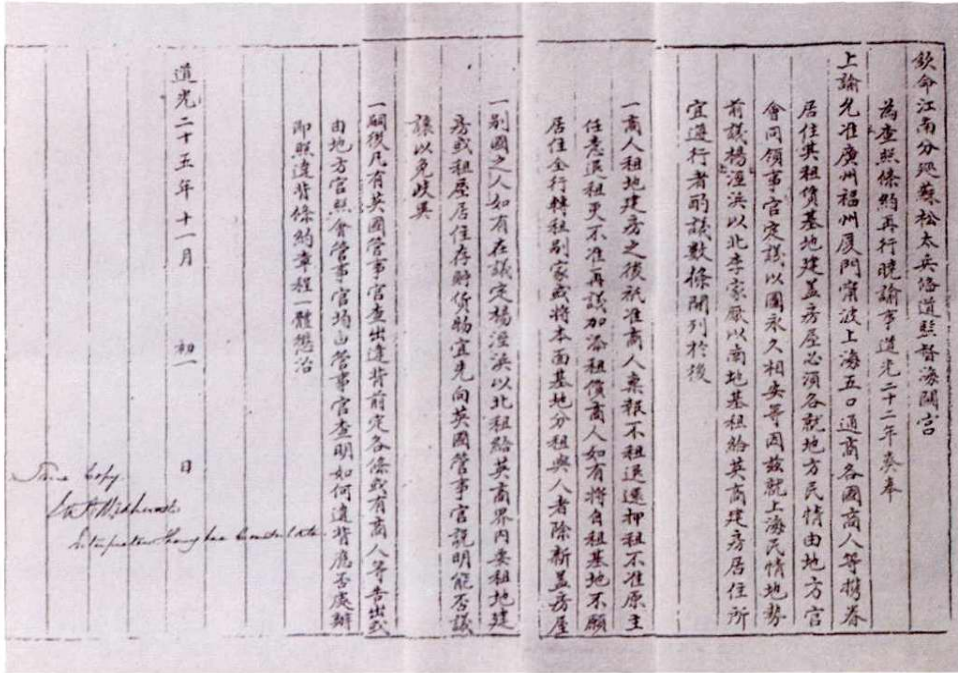 欽命江南分巡蘇松太兵備道監督海關宮
為查照條約再行曉諭事道光二十二年奏奉
上諭允准廣州福州厦門甯波上海五口通商各國商人等攜眷
居住其租賃基地建蓋房屋必須各就地方民情由地方官
會同領事官定議以圖永久相安等因茲就上海民情地勢
前議楊涇浜以北李家廠以南地基租給英商建房居住所
宜遵行者酌議數條開列於後
一商人租地建房之後祇准商人稟報不租退還押租不准原主
任意退租更不准再議加添租價商人如有將自租基地不願
居住全行轉租別家或將本面基地分租與人者除新蓋房屋
一別國之人如有在議定楊涇浜以北租給英商界內要租地建
房或租屋居住存貯貨物宜先向英國管事官說明能否議
讓以免歧異
一嗣後凡有英國管事官查出違背前定各條或有商人等告出或
由地方官照會管事官均由管事官查明如何違背應否處辦
即照違背條約章程一體懲治
道光二十五年十一月 初一 日
True Copy
Interpreter Shanghae Consulate